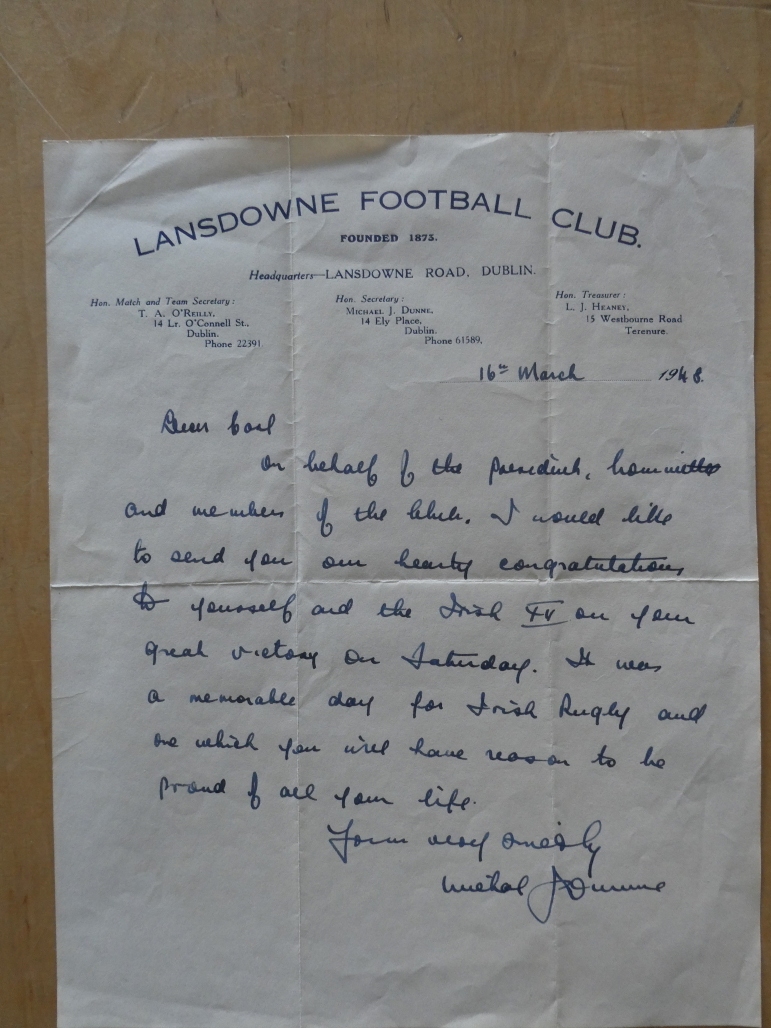 LANSDOWNE FOOTBALL CLUB.
FOUNDED 1873.
Headquarters—LANSDOWNE ROAD, DUBLIN.
Hon. Match and Team Secretary:
T. A. O'REILLY,
14 Lr. O'Connell St.,
Dublin.
Phone 22391
Hon. Secretary:
MICHAEL J. DUNNE,
14 Ely Place,
Dublin.
Phone 61589.
Hon. Treasurer:
L. J. HEANEY,
15 Westbourne Road
Terenure.
16th March 1948.
Dear Carl
On behalf of the President, Committee
and members of the Club, I would like
to send you our hearty congratulations
to yourself and the Irish XV on your
great victory on Saturday. It was
a memorable day for Irish Rugby and
one which you will have reason to be
proud of all your life.
Yours very sincerely
Michael J Dunne